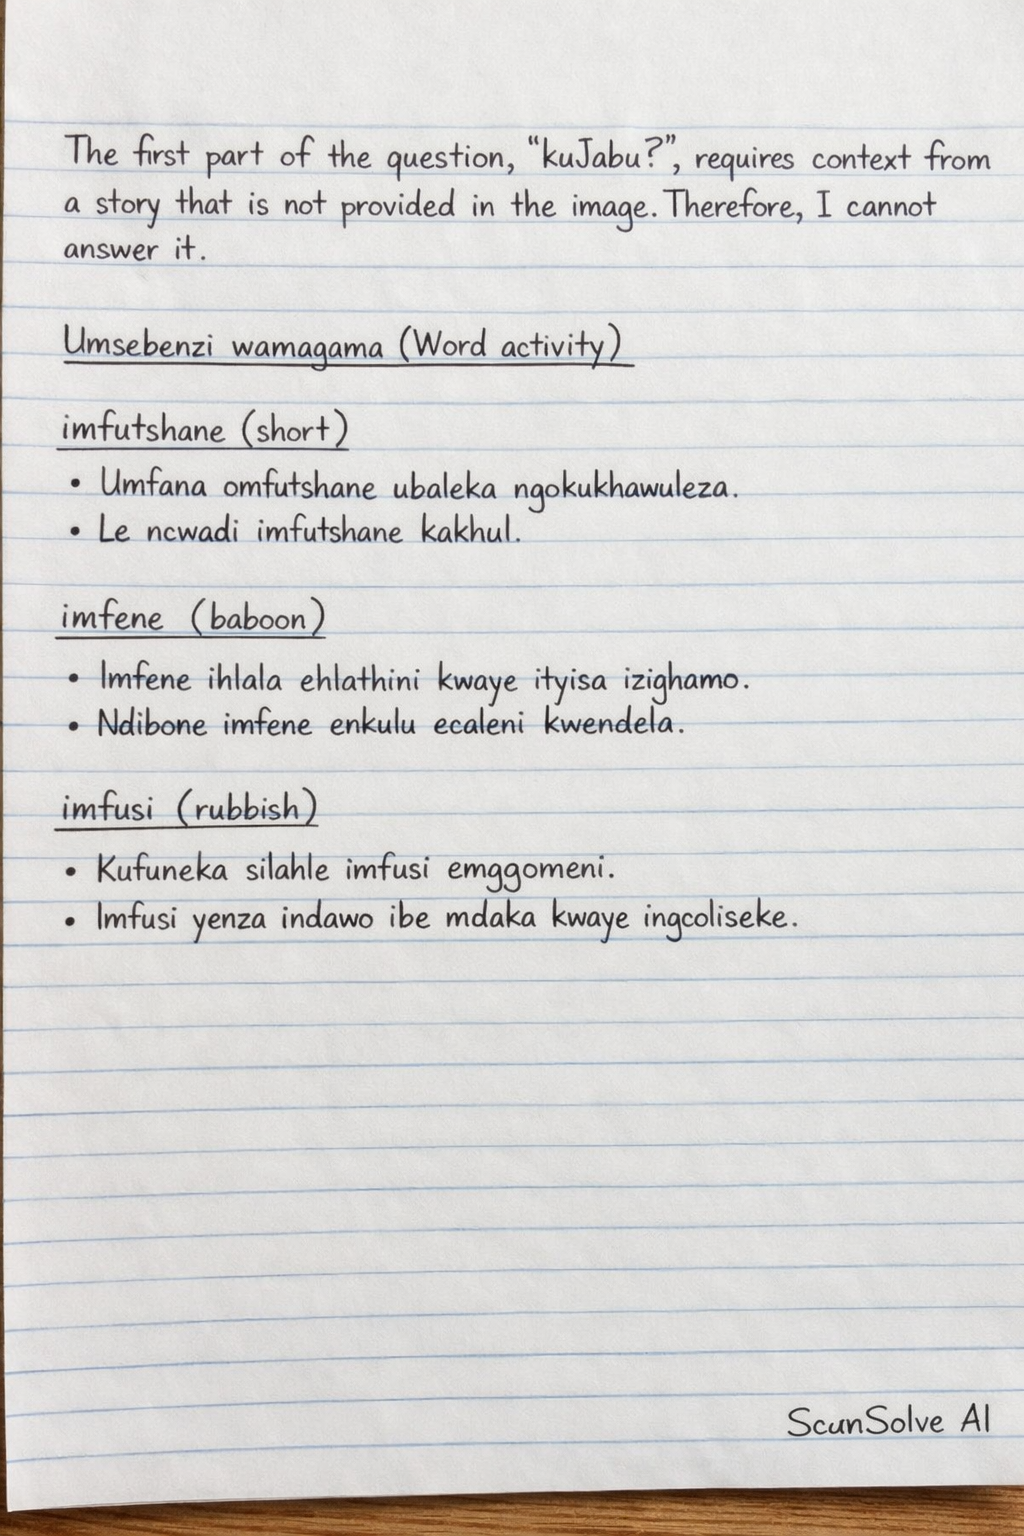 The first part of the question, “kuJabu?”, requires context from
a story that is not provided in the image. Therefore, I cannot
answer it.
Umsebenzi wamagama (Word activity)
imfutshane (short)
• Umfana omfutshane ubaleka ngokukhawuleza.
• Le ncwadi imfutshane kakhul.
imfene (baboon)
• Imfene ihlala ehlathini kwaye ityisa izighamo.
• Ndibone imfene enkulu ecaleni kwendela.
imfusi (rubbish)
• Kufuneka silahle imfusi emggomeni.
• Imfusi yenza indawo ibe mdaka kwaye ingcoliseke.
ScunSolve AI